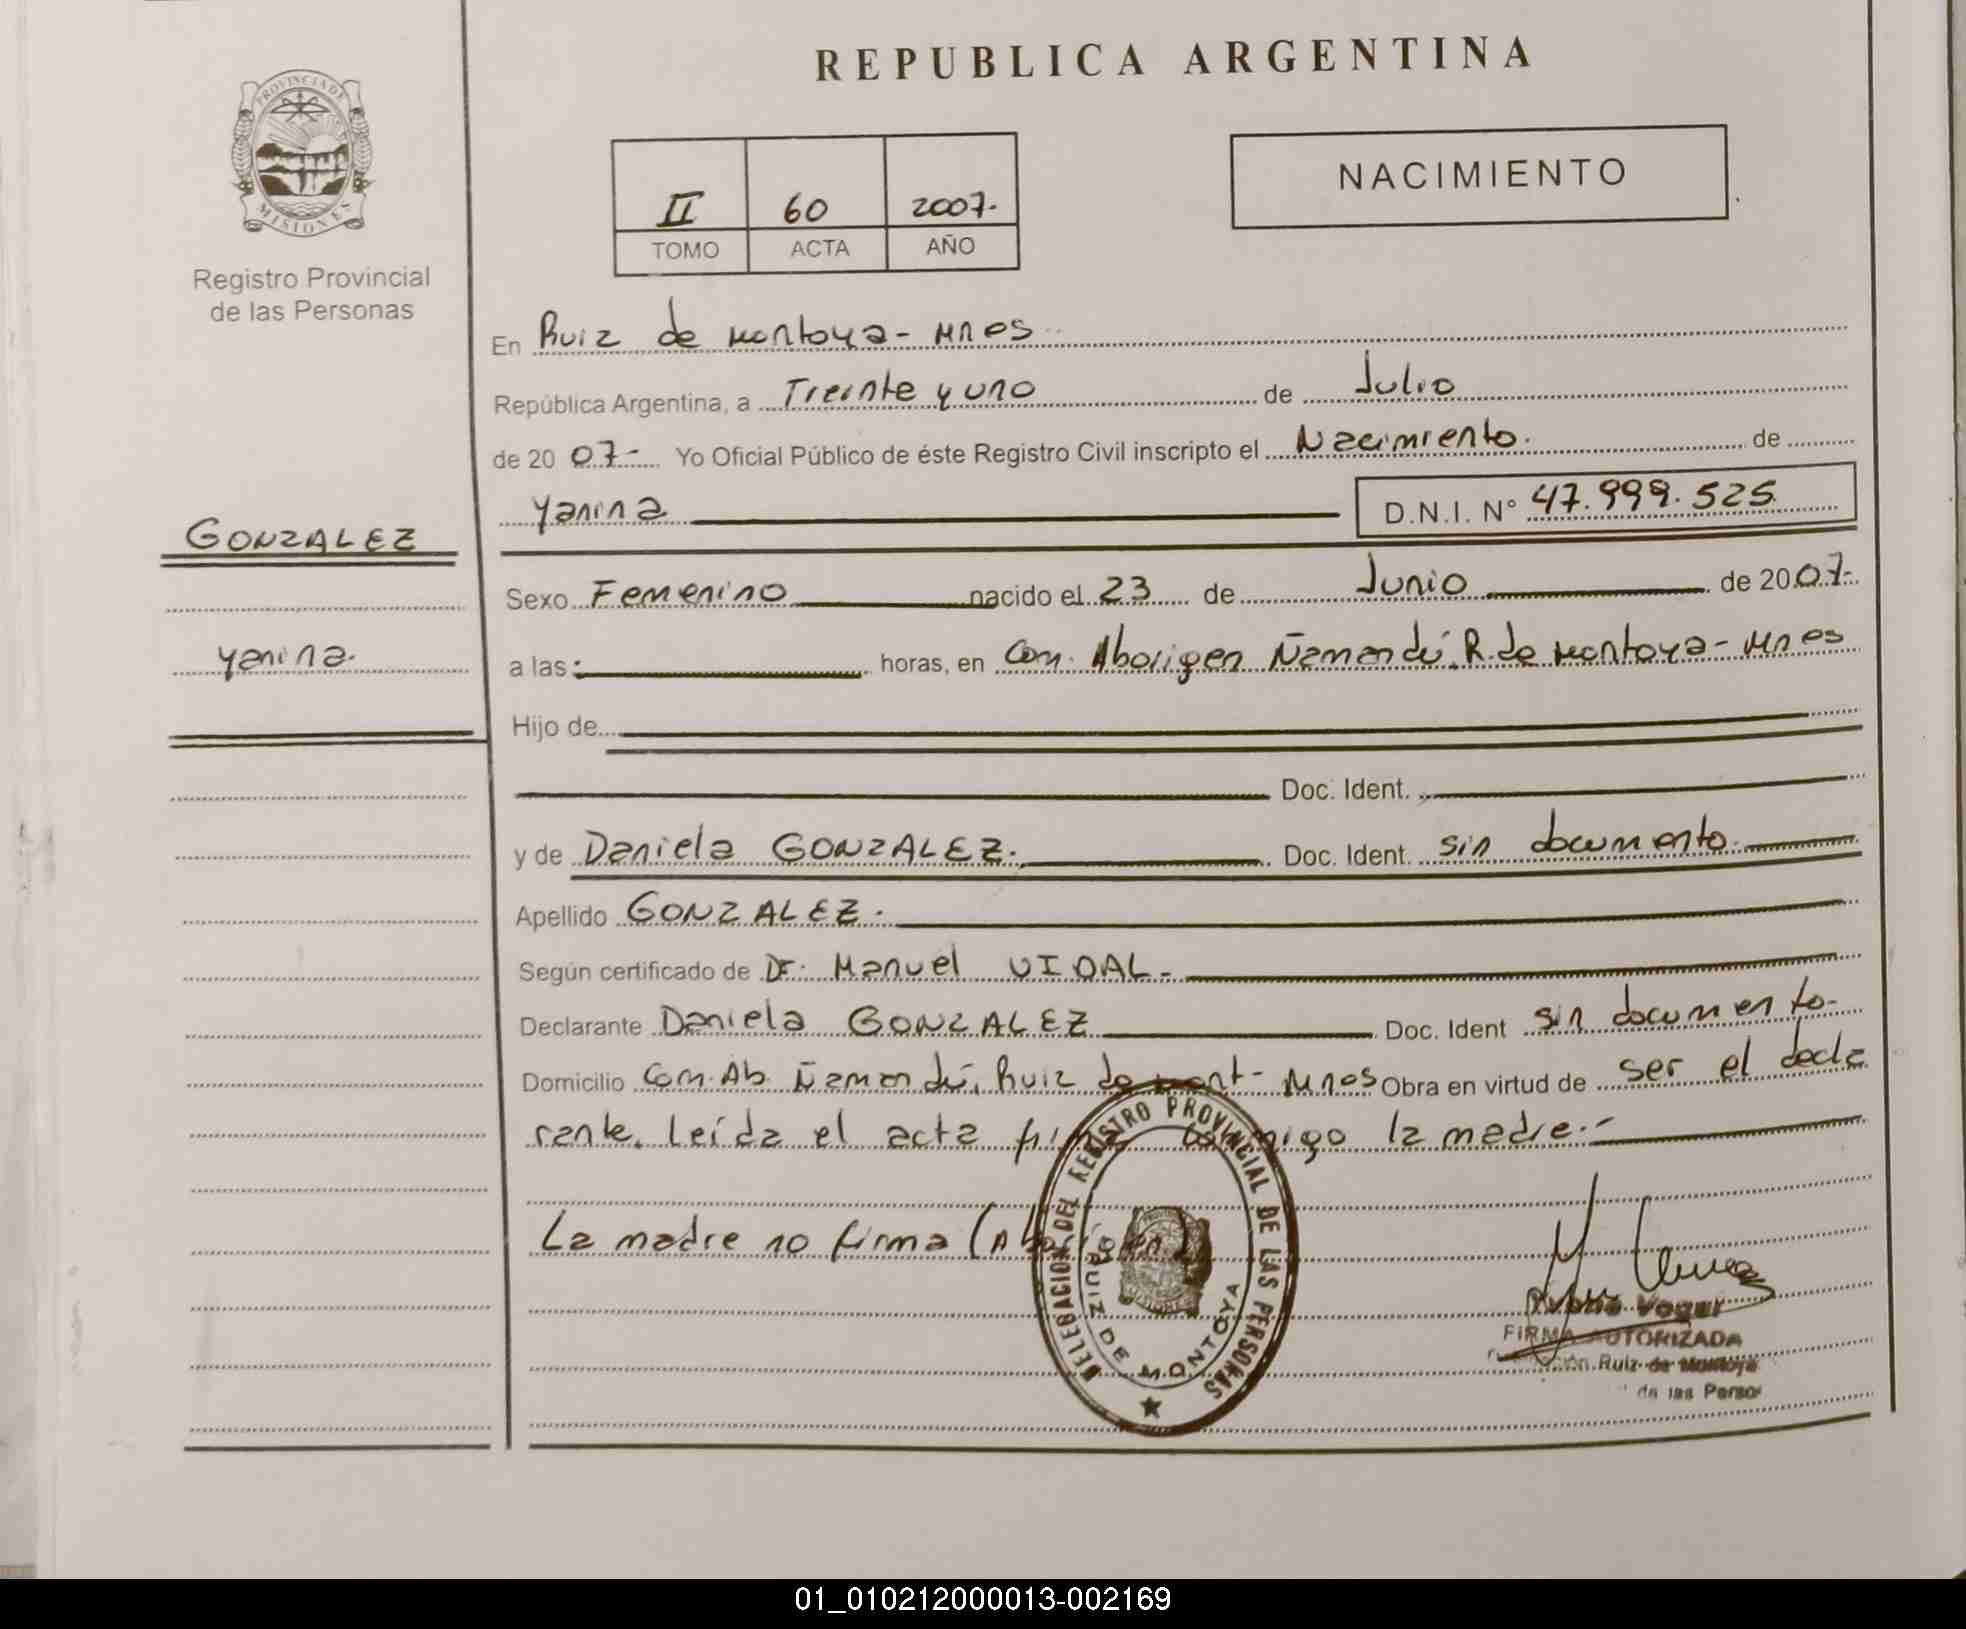 REPUBLICA ARGENTINA
PROVINCIA DE
MISIONES
Registro Provincial
de las Personas
II 60 2007.
TOMO ACTA AÑO
NACIMIENTO
En Ruiz de Montoya - Mnes
República Argentina, a Treinte y uno de Julio
de 20 07- Yo Oficial Público de éste Registro Civil inscripto el Nacimiento. de
Yanina D.N.I. N° 47.999.525
GONZALEZ
Yanina.
Sexo Femenino nacido el 23 de Junio de 20 07-
a las : horas, en Com. Aborigen Ñamandú. R. de Montoya - Mnes
Hijo de
Doc. Ident.
y de Daniela GONZALEZ. Doc. Ident. sin documento.
Apellido GONZALEZ.
Según certificado de Dr. Manuel VIDAL-
Declarante Daniela GONZALEZ Doc. Ident sin documento-
Domicilio Com. Ab Ñamandú, Ruiz de Mont- Mnes Obra en virtud de ser el decla
rante. Leída el acta firma conmigo la madre.-
La madre no firma (Aborigen)
DELEGACION DEL REGISTRO PROVINCIAL DE LAS PERSONAS
RUIZ DE MONTOYA
FIRMA AUTORIZADA
Ruiz de Montoya
de las Person
01_010212000013-002169